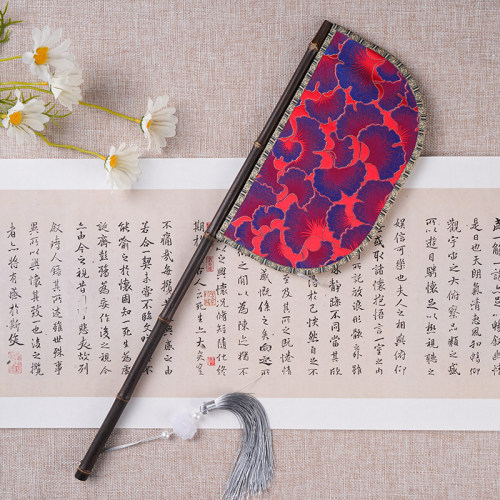 是日也天朗氣清惠風和暢仰
觀宇宙之大俯察品類之盛
所以遊目騁懷足以極視聽之
娛信可樂也夫人之相與俯仰
或取諸懷抱悟言一室之內
放浪形骸之外雖
靜躁不同當其欣
於己怏然自足不
及其所之既惓情
感慨係之矣向之所
之間以為陳迹猶不
之興懷況脩短隨化終
期於
云死生亦大矣豈
不痛哉每攬
興感之由
若合一契未嘗不臨文
能喻之於懷固知一死生為虛
誕齊彭殤為妄作後之視今
亦由今之視昔悲夫故列
敘時人錄其所述雖世殊事
異所以興懷其致一也後之攬
者亦將有感於斯文